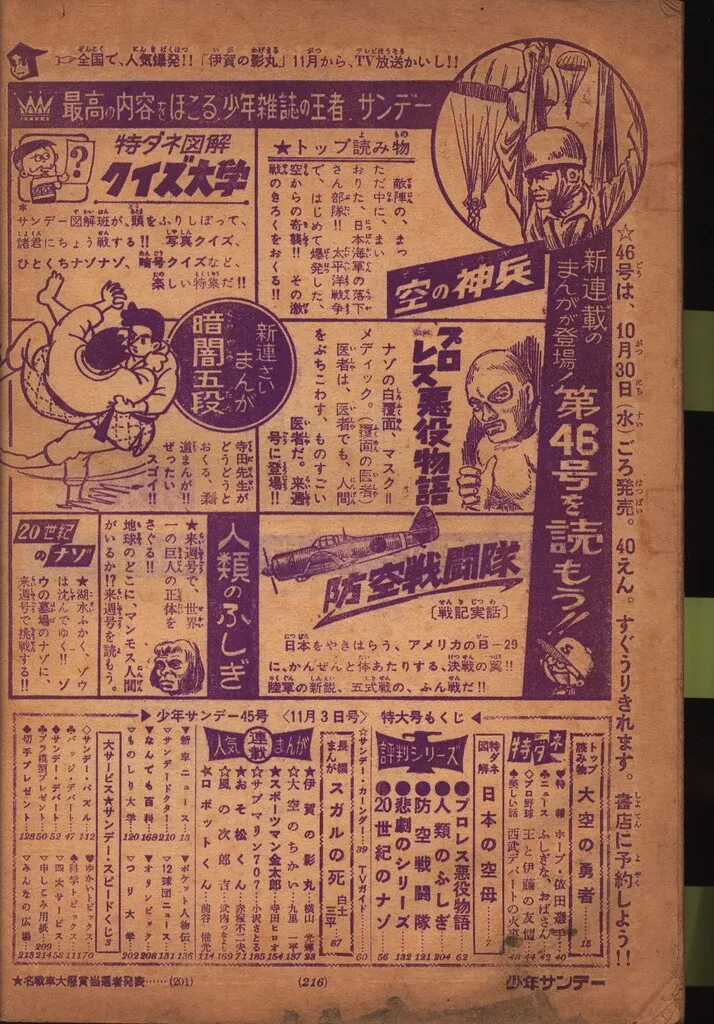 全国で、人気爆発!!「伊賀の影丸」11月から、TV放送かいし!!
最高の内容をほこる少年雑誌の王者 サンデー
☆46号は、10月30日(水)ごろ発売。40えん。すぐうりきれます。書店に予約しよう!!
新連載の
まんがが登場!
第46号を読もう!!
★トップ読み物
空の神兵
敵陣の、まっ
ただ中に、まい
おりた、日本海軍の落下
さん部隊!! 太平洋戦争
で、はじめて爆発した、
空からの奇襲!! その激
戦のきろくをおくる!!
特ダネ図解
クイズ大学
サンデー図解班が、頭をふりしぼって、
諸君にちょう戦する!! 写真クイズ、
ひとくちナゾナゾ、暗号クイズなど、
楽しい特集だ!!
プロ
レス悪役物語
ナゾの白覆面、マスク=
メディック。(覆面の医者)
医者は、医者でも、人間
をぶちこわす、ものすごい
医者だ。来週
号に登場!!
新連さい
まんが
暗闇五段
寺田先生が
どうどうと
おくる、柔
道まんが!!
ぜったい
スゴイ!!
防空戦闘隊
〔戦記実話〕
日本をやきはらう、アメリカのB-29
に、かんぜんと体あたりする、決戦の翼!!
陸軍の新鋭、五式戦の、ふん戦だ!!
人類のふしぎ
★来週号で、世界
一の巨人の正体を
さぐる!!
地球のどこに、マンモス人間
がいるか!?来週号を読もう。
20世紀
のナゾ
★湖水ふかく、ゾウ
は沈んでゆく!! ゾ
ウの墓場のナゾに、
来週号で挑戦する!!
少年サンデー45号 〈11月3日号〉 特大号もくじ
トップ
読み物
大空の勇者 15
特ダネ
♥特報 ホープ・依田選手 40
♣ニュース ふしぎな、おばさん 42
◇プロ野球 王と伊藤の友情
♠美しい話 西武デパートの火事
特ダネ
図解
日本の空母 7
評判シリーズ
プロレス悪役物語 62
人類のふしぎ 204
防空戦闘隊 121
悲劇のシリーズ 132
20世紀のナゾ 56
☆サンデー・カレンダー 39 TVガイド 60
人気連載まんが
長編
まんが
スガルの死 白土三平 87
★伊賀の影丸 横山光輝 23
★大空のちかい 九里一平 187
★スポーツマン金太郎 寺田ヒロオ 154
★サブマリン707 小沢さとる 185
★おそ松くん 赤塚不二夫 71
★風の次郎吉 武内つなよし 169
★ロボットくん 前谷惟光 114
▼新車ニュース 13
▽サンデードクター 210
▼なんでも百科 168
▽ものしり大学 120
▼ポケット人物伝 136
▽12球団ニュース 131
▼オリンピック 208
▽つり大学 202
大サービス★サンデー・スピードくじ 3
◇サンデー・パズル 112
♣バッジ・デパート 47
♠サンデー・デパート 52
♣プラ模型プレゼント 50
♠切手プレゼント 128
♥ゆかいトピックス 170
♠科学トピックス 11
♣四大サービス 58
♠申しこみ用紙 209 214
♡みんなの広場 213
★名戦車大懸賞当選者発表……(201)
(216)
少年サンデー